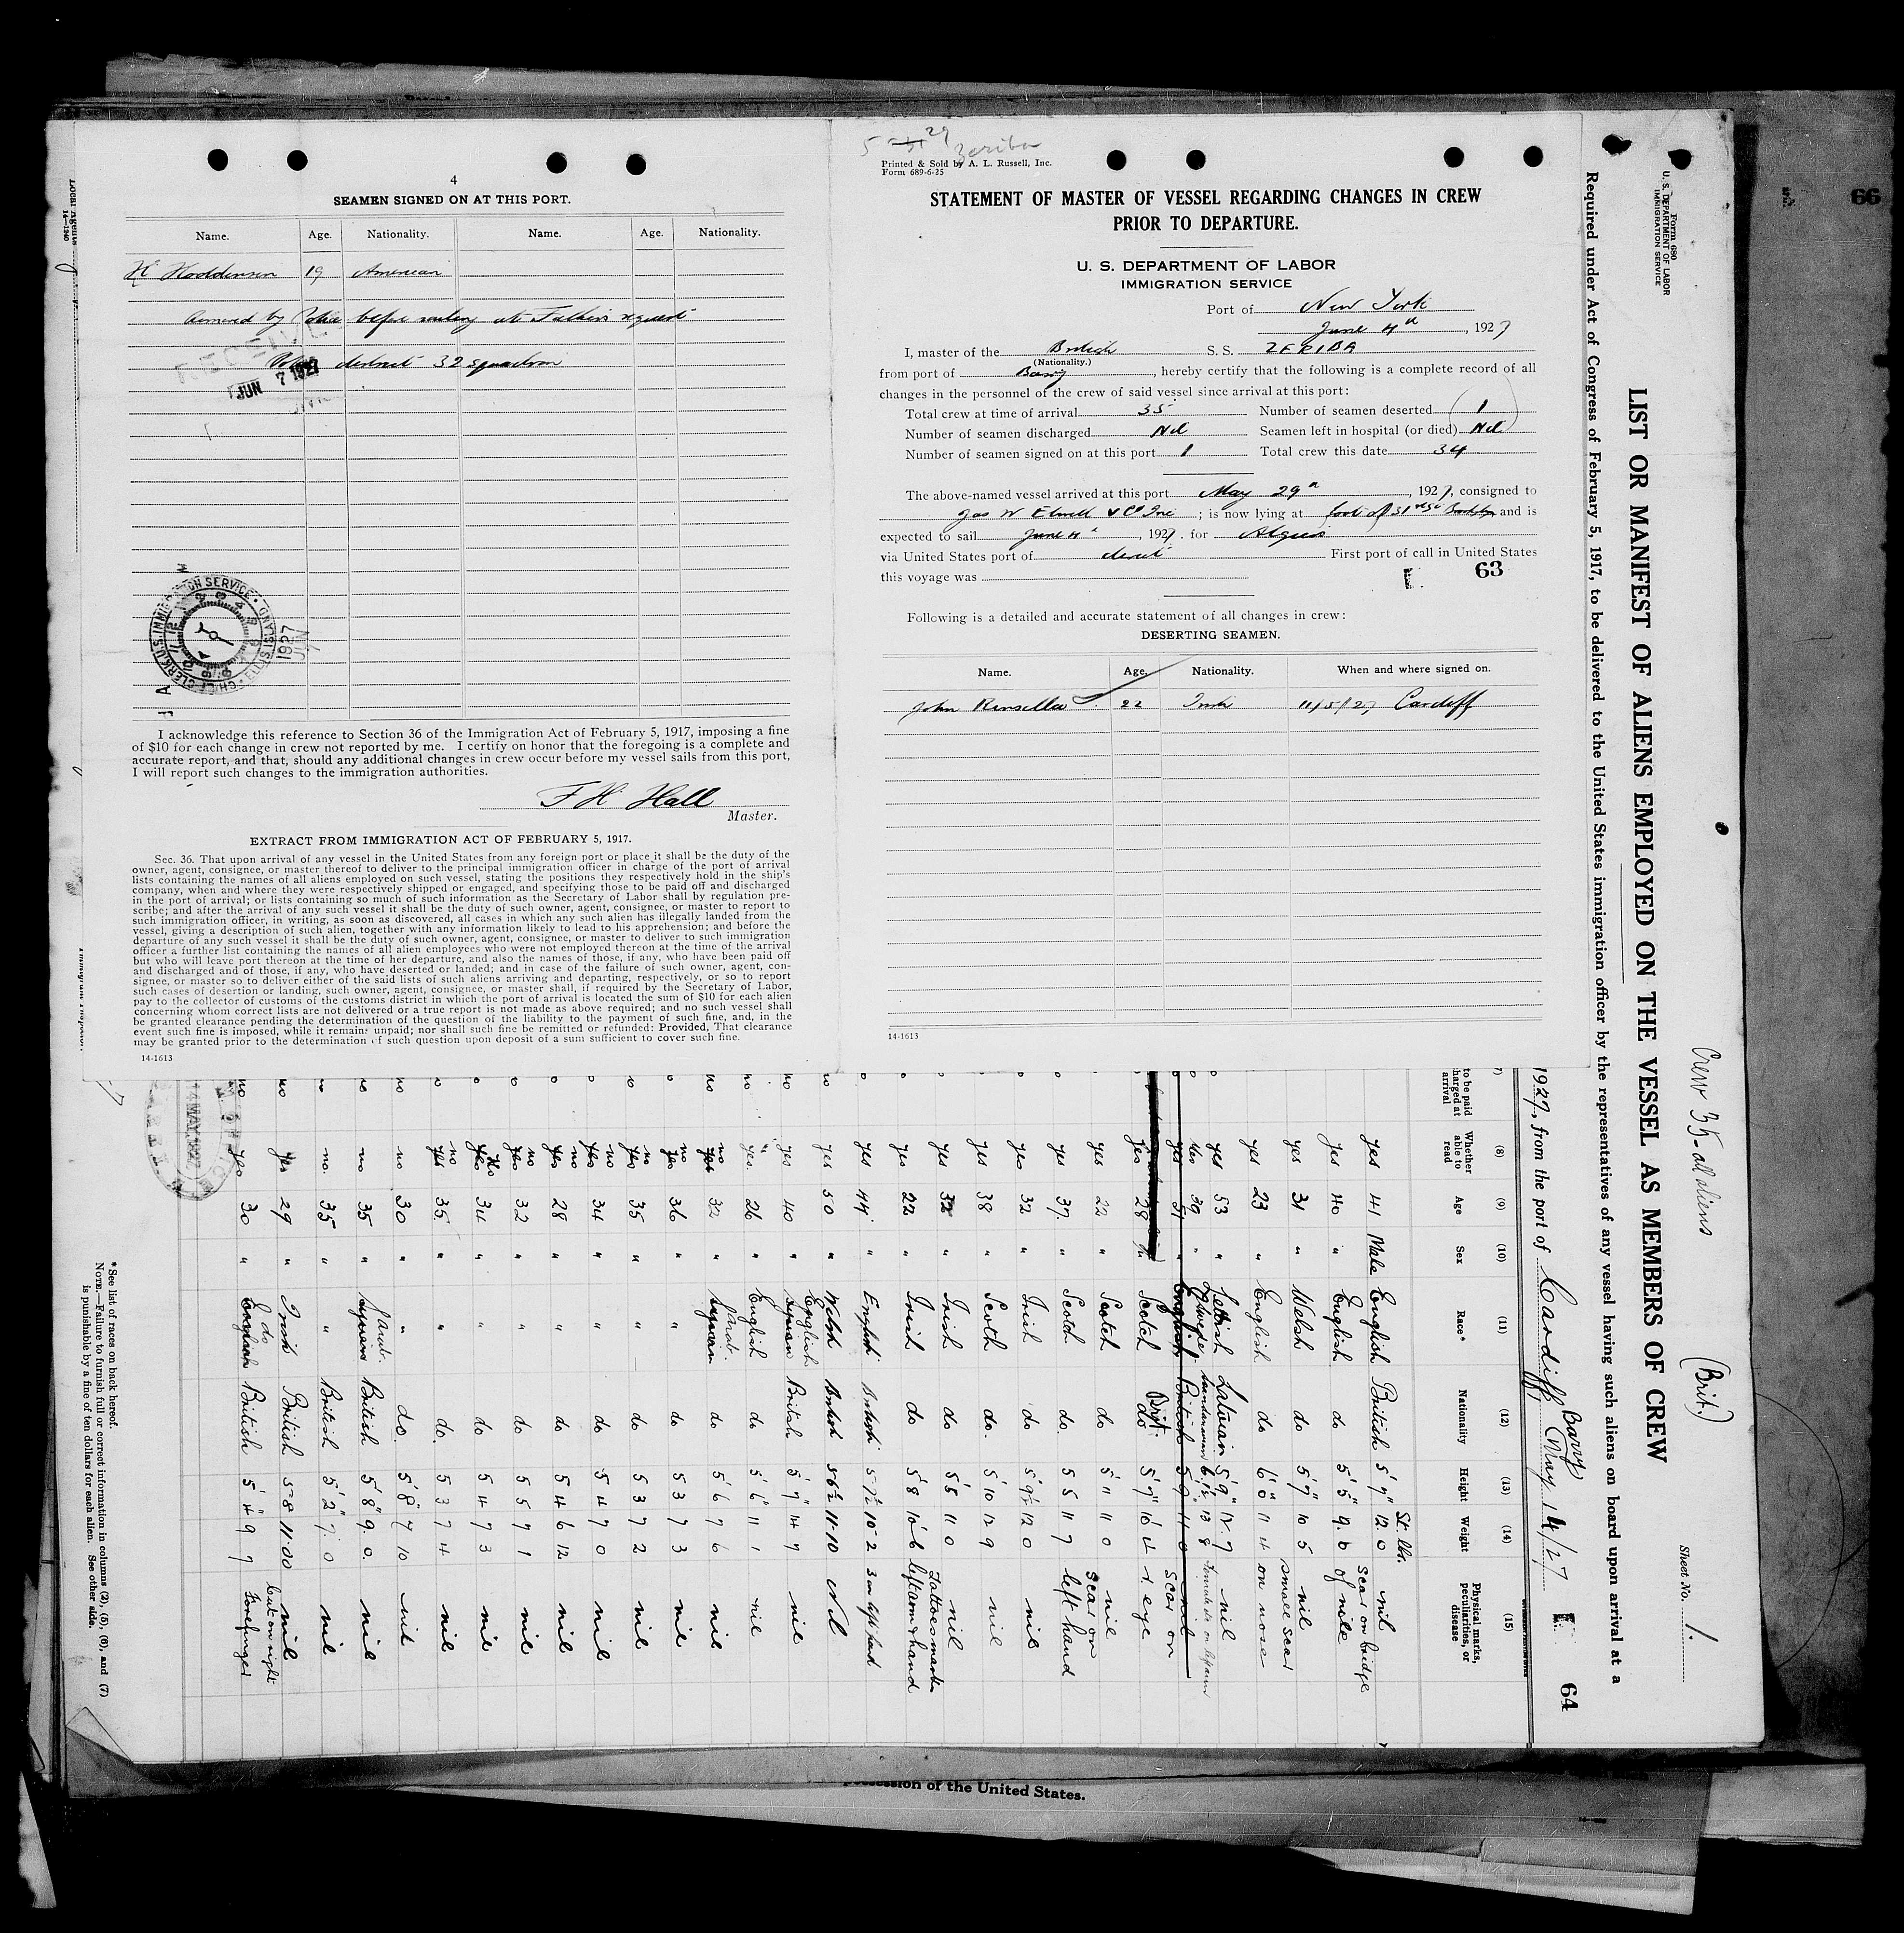 66
4
SEAMEN SIGNED ON AT THIS PORT.
Name. Age. Nationality. Name. Age. Nationality.
H Hoddensen 19 American
Removed by Police before sailing at Fathers request
Police district 32 squadron
RECEIVED
JUN 7 1927
CHIEF CLERK U.S. IMMIGRATION SERVICE · ELLIS ISLAND
1927
JUN
7
I acknowledge this reference to Section 36 of the Immigration Act of February 5, 1917, imposing a fine
of $10 for each change in crew not reported by me. I certify on honor that the foregoing is a complete and
accurate report, and that, should any additional changes in crew occur before my vessel sails from this port,
I will report such changes to the immigration authorities.
F H Hall
Master.
EXTRACT FROM IMMIGRATION ACT OF FEBRUARY 5, 1917.
Sec. 36. That upon arrival of any vessel in the United States from any foreign port or place it shall be the duty of the
owner, agent, consignee, or master thereof to deliver to the principal immigration officer in charge of the port of arrival
lists containing the names of all aliens employed on such vessel, stating the positions they respectively hold in the ship's
company, when and where they were respectively shipped or engaged, and specifying those to be paid off and discharged
in the port of arrival; or lists containing so much of such information as the Secretary of Labor shall by regulation pre-
scribe; and after the arrival of any such vessel it shall be the duty of such owner, agent, consignee, or master to report to
such immigration officer, in writing, as soon as discovered, all cases in which any such alien has illegally landed from the
vessel, giving a description of such alien, together with any information likely to lead to his apprehension; and before the
departure of any such vessel it shall be the duty of such owner, agent, consignee, or master to deliver to such immigration
officer a further list containing the names of all alien employees who were not employed thereon at the time of the arrival
but who will leave port thereon at the time of her departure, and also the names of those, if any, who have been paid off
and discharged and of those, if any, who have deserted or landed; and in case of the failure of such owner, agent, con-
signee, or master so to deliver either of the said lists of such aliens arriving and departing, respectively, or so to report
such cases of desertion or landing, such owner, agent, consignee, or master shall, if required by the Secretary of Labor,
pay to the collector of customs of the customs district in which the port of arrival is located the sum of $10 for each alien
concerning whom correct lists are not delivered or a true report is not made as above required; and no such vessel shall
be granted clearance pending the determination of the question of the liability to the payment of such fine, and, in the
event such fine is imposed, while it remains unpaid; nor shall such fine be remitted or refunded: Provided, That clearance
may be granted prior to the determination of such question upon deposit of a sum sufficient to cover such fine.
14-1613
5 29 Zeriba
Printed & Sold by A. L. Russell, Inc.
Form 689-6-25
STATEMENT OF MASTER OF VESSEL REGARDING CHANGES IN CREW
PRIOR TO DEPARTURE.
U. S. DEPARTMENT OF LABOR
IMMIGRATION SERVICE
Port of New York
June 4th, 1927
I, master of the British S. S. ZERIBA
(Nationality.)
from port of Barry, hereby certify that the following is a complete record of all
changes in the personnel of the crew of said vessel since arrival at this port:
Total crew at time of arrival 35 Number of seamen deserted (1)
Number of seamen discharged Nil Seamen left in hospital (or died) Nil
Number of seamen signed on at this port 1 Total crew this date 34
The above-named vessel arrived at this port May 29th, 1927, consigned to
Jas W Elwell & Co Inc; is now lying at foot of 31st St Brooklyn and is
expected to sail June 4th, 1927. for Algiers
via United States port of direct First port of call in United States
this voyage was
63
Following is a detailed and accurate statement of all changes in crew:
DESERTING SEAMEN.
Name. Age. Nationality. When and where signed on.
John Kinsella 22 Irish 11/5/27 Cardiff
14-1613
Form 680
U. S. DEPARTMENT OF LABOR
IMMIGRATION SERVICE
Crew 35 - all aliens (Brit.)
Sheet No. 1.
LIST OR MANIFEST OF ALIENS EMPLOYED ON THE VESSEL AS MEMBERS OF CREW
Required under Act of Congress of February 5, 1917, to be delivered to the United States immigration officer by the representatives of any vessel having such aliens on board upon arrival at a
1927, from the port of Cardiff Barry May 14/27
64
(8) (9) (10) (11) (12) (13) (14) (15)
to be paid
arrival
Whether able to read Age Sex Race* Nationality Height Weight Physical marks, peculiarities, or disease
St. lbs.
yes 41 Male English British 5'7" 12. 0 nil
yes 40 " English do 5'5" 9. 6 Scar on bridge of nose
yes 31 " Welsh do 5'7" 10 5 nil
yes 23 " English do 6'0" 11 4 small scar on nose
yes 53 " Lettish Latvian 5'9" 12. 7 nil
yes 39 " Swede 6'1½" 13 8
yes 51 " English British 5 9 11 0 nil
yes 28 " Scotch Brit. do 5'7" 10 4 Scar on L. eye
yes 22 " Scotch do 5'11 11 0 nil
yes 37. " Scotch do. 5 5 11 7 Scar on left hand
yes 32 " Irish do 5'9½ 12 0 nil
yes 38 " Scotch do. 5'10 12 9 nil
yes 32 " Irish do 5'8 11 0 nil
yes 22 " Irish do 5'8 10 6 Tattoo marks left arm & hand
yes 44 " English British 5-7½ 10-2
yes 50 " Welsh British 5 6½ 11-10 Nil
yes 40 " English British 5'7" 14 7 nil
yes. 26 " English do 5'6" 11 1 nil
no 32 " Arab. do 5'6 7 6 nil
no 36 " do 5 3 7 3 nil
no 35 " do 5 3 7 2 nil
no 34 " do 5 4 7 0 nil
no 28 " do 5 4 6 12 nil
no 32 " " do 5 5 7 1 nil
No 34 " " do 5 4 7 3 nil
no 35. " " do. 5 3 7 4 nil
no 30 " " do. 5'8" 7 10 nil
no 35 " Arab. British 5'8" 9. 0. nil
no. 35 " " British 5'2" 7 0 nil
yes 29 " Irish British 5-8 11-00 nil
yes 30 " do British 5'4" 9 7 Cut on right Forefinger
14 MAY 1927
* See list of races on back hereof.
NOTE.—Failure to furnish full or correct information in columns (2), (5), (6), and (7)
is punishable by a fine of ten dollars for each alien. See other side.
Local Agents
14-1240
possession of the United States.